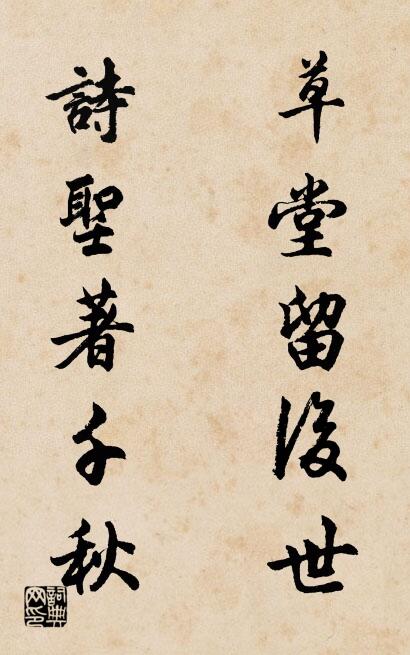 草堂留後世
詩聖著千秋
詞典网印